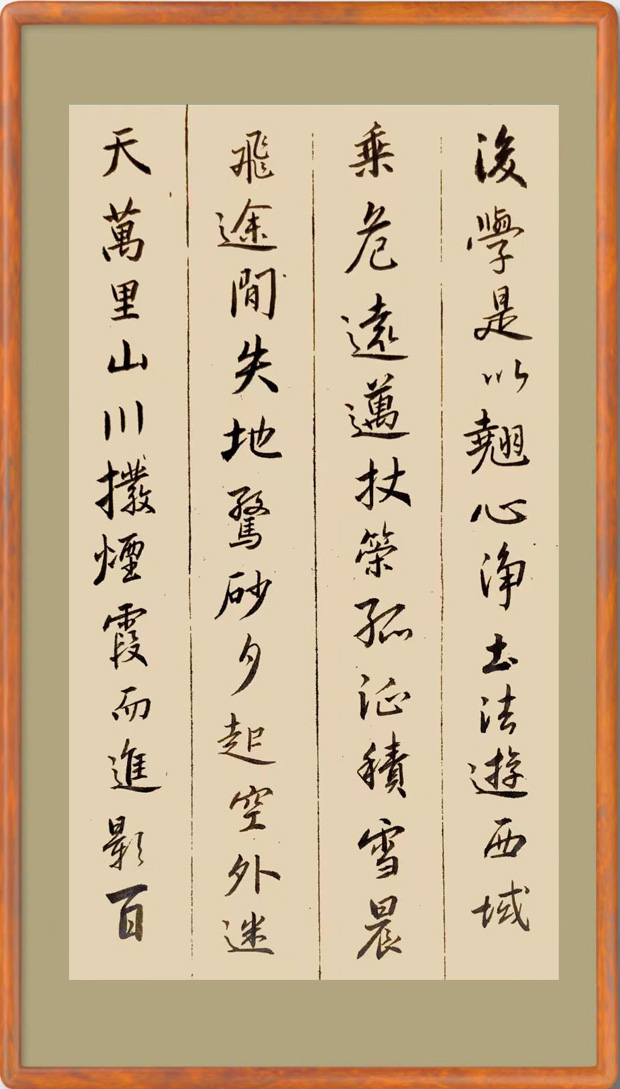 後學是以翹心淨土法遊西域
乘危遠邁杖策孤征積雪晨
飛途間失地驚砂夕起空外迷
天萬里山川撥煙霞而進影百